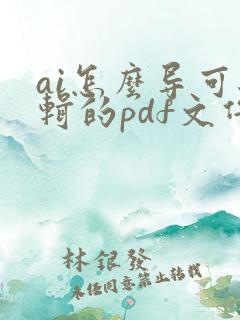 ai怎麼导可
輯的pdf文
林銀發
未任同意禁止转载